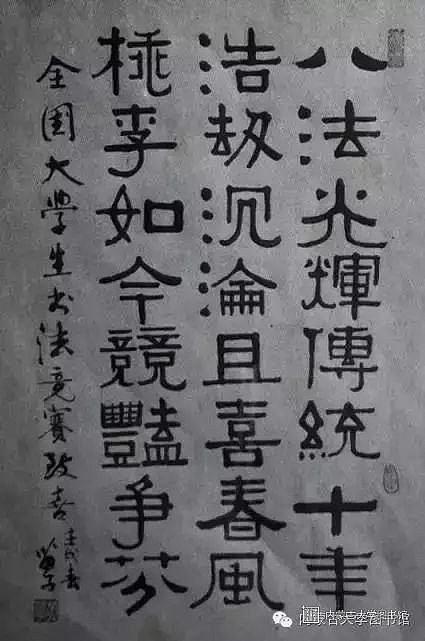 八法光輝傳統十年
浩劫沉淪且喜春風
桃李如今競豔爭芬
全国大學生书法竞赛致喜
壬戌春
书馆